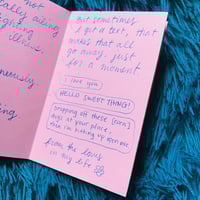 not
ally ailing
ighting
illness.
neously
ing
But sometimes
I get a text, that
makes that all
go away, just
for a moment
I love you
HELLO SWEET THING!
Dropping off these [corn]
dogs at your place,
then I'm hitting up
from the loves
in my life